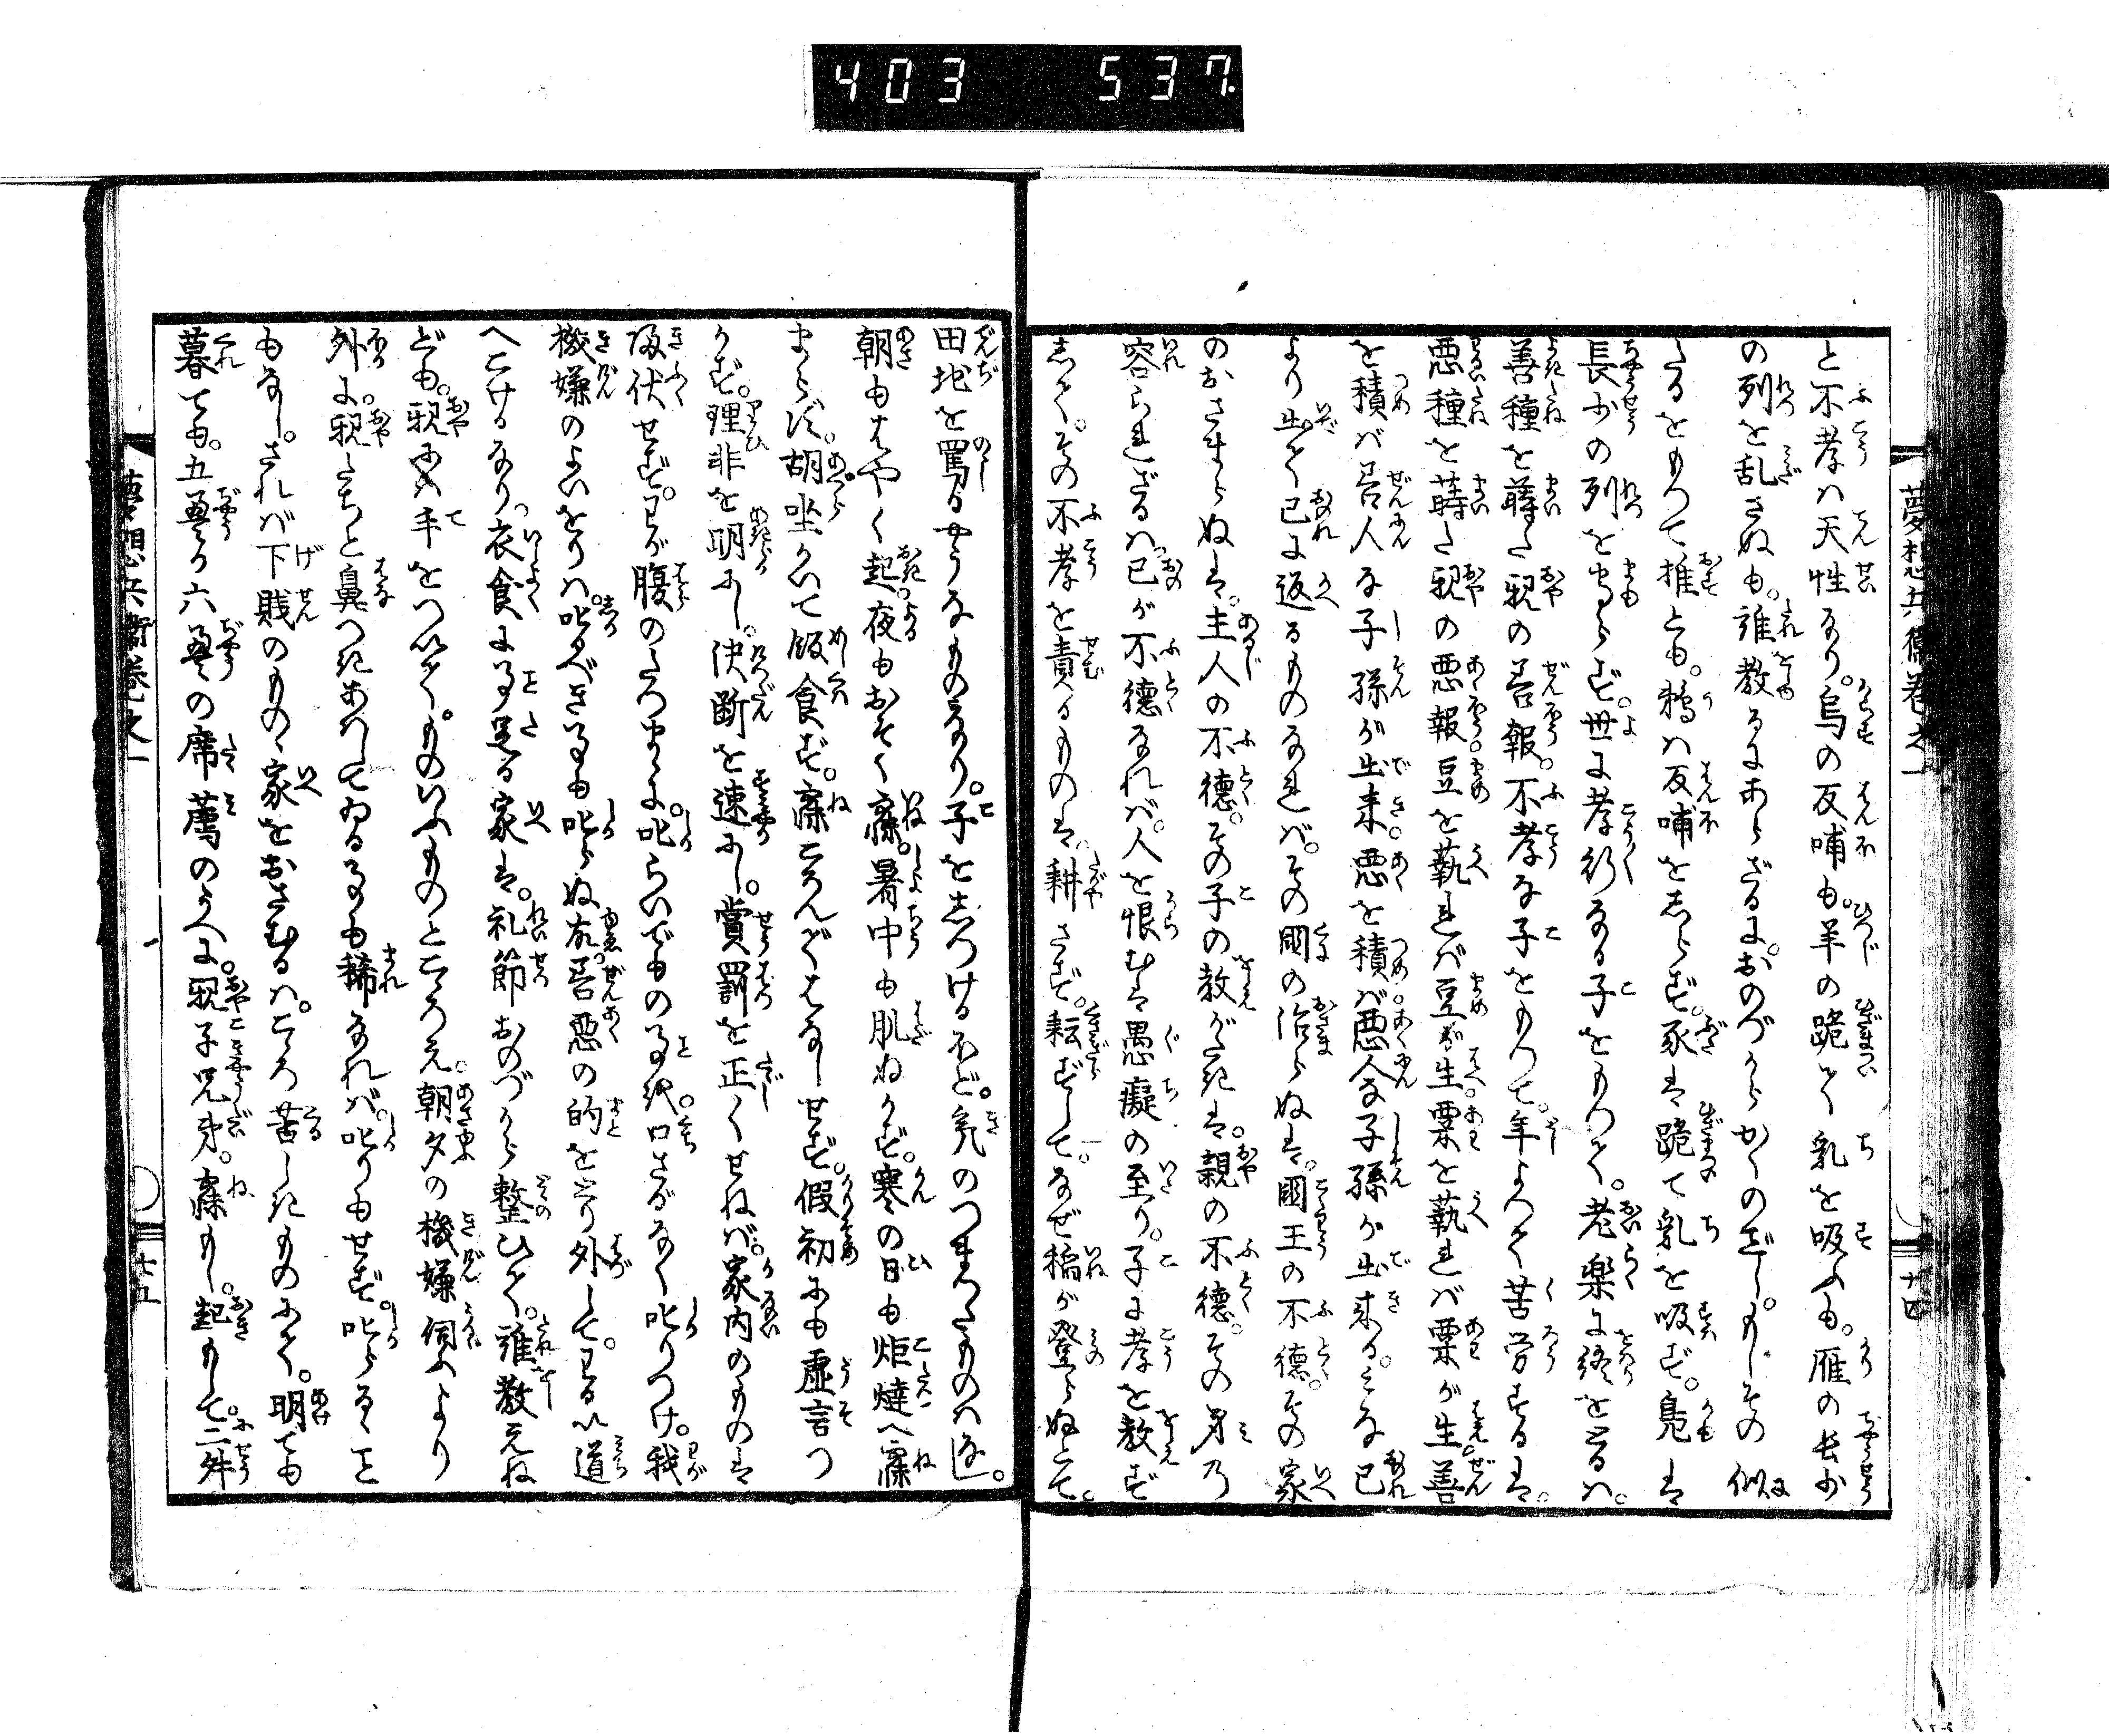 403 537
夢想兵衛巻之一 十四
と不孝は天性なり。烏の反哺も。羊の跪て乳を吸ふも。雁の長少
の列を乱さぬも。誰教るにあらざるに。おのづからかくのごとし。もしその似
たるをもつて推とも。鵜は反哺をしらず。豕は跪て乳を吸ず。鳧は
長少の列を守らず。世に孝行なる子をもつて。老楽に終をとるは。
善種を蒔た親の善報。不孝な子をもつて。年よつて苦労するは。
悪種を蒔た親の悪報。豆を藝れば豆が生。粟を藝れば粟が生。善
を積ば善人な子孫が出来。悪を積ば悪人な子孫が出来る。みな已
より出て已に返るものなれば。その國の治らぬは。國王の不徳。その家
のおさまらぬは。主人の不徳。その子の教がたきは。親の不徳。その身の
容られざるは已が不徳なれば。人を恨むは愚癡の至り。子に孝を教ず
して。その不孝を責るものは。耕さず。耘ずして。なぜ稲が登らぬとて。
田地を罵るやうなものなり。子をしつけるほど。気のつまつたものはなし。
朝もはやく起。夜もおそく寐。暑中も肌ぬがず。寒の日も炬燵へ寐
まらず。胡坐かいて飯食ず。寐ころんではなしせず。假初にも虚言つ
かず。理非を明にし。決断を速にし。賞罰を正しくせねば。家内のものは
帰伏せず。わが腹のたつまゝに。叱らいでもの事を。口さがなく叱りつけ。我
機嫌のよいをりは。叱べき事も叱らぬ故。善悪の的をとり外して。わるい道
へこけるなり。衣食に事足る家は。礼節おのづから整ひて。誰教えね
ども。親には手をついて。ものいふものとこゝろえ。朝夕の機嫌伺ふより
外に。親たちと鼻つきあはしてゐる事も稀なれば。叱りもせず。叱らるゝこと
もなし。されば下賎のものゝ家をおさむるは。こゝろ苦しきものにて。明ても
暮ても。五畳か六畳の席薦のうへに。親子兄弟。寐もし。起もして。二舛
夢想兵衛巻之一 十五